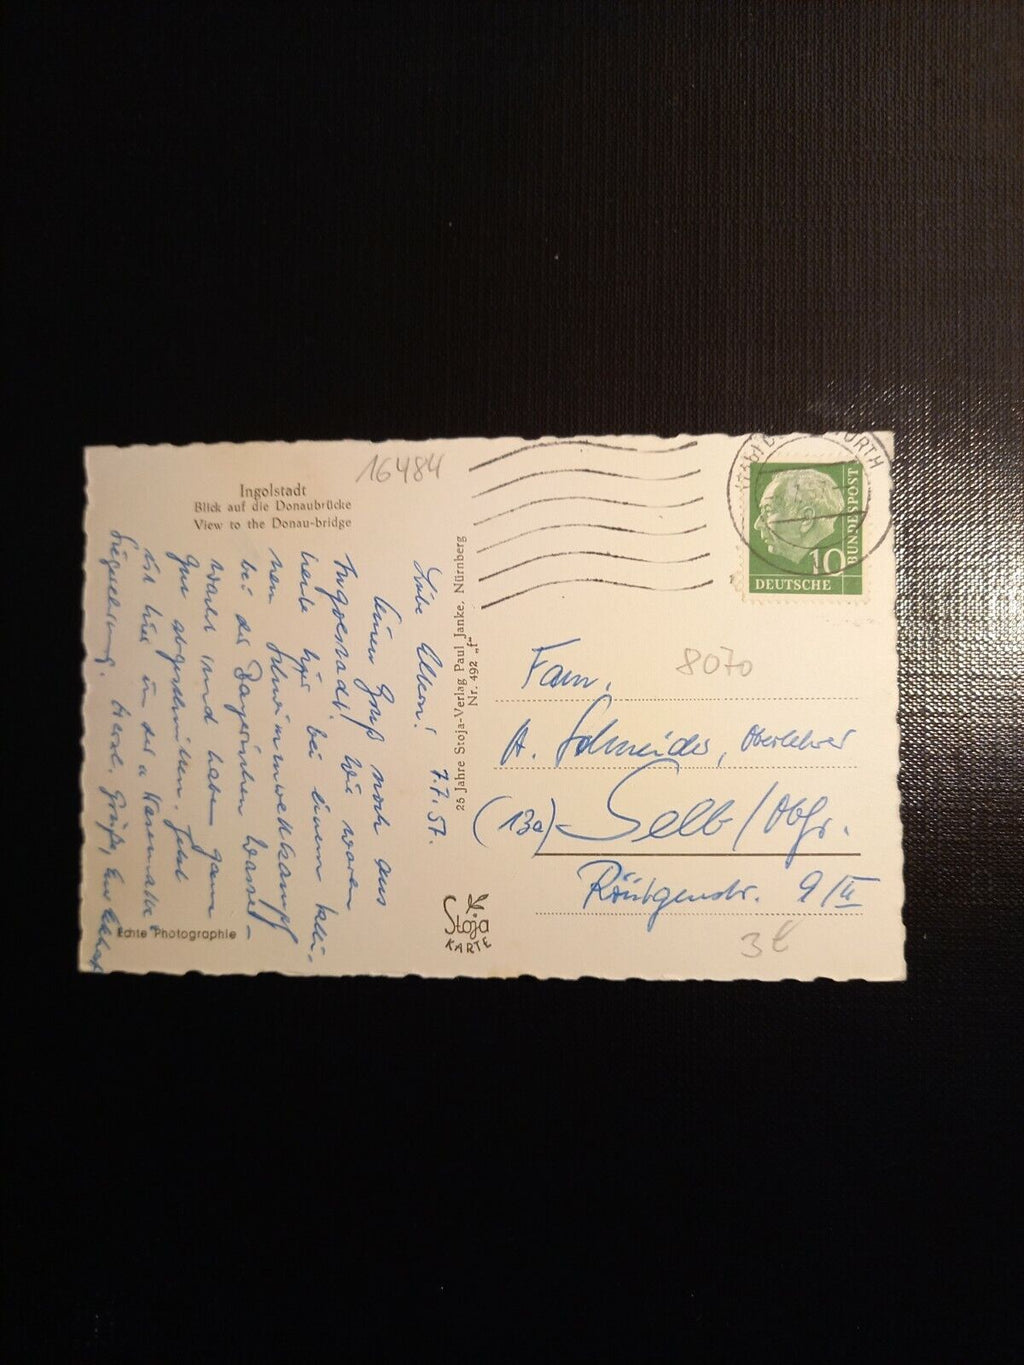 16484
Ingolstadt
Blick auf die Donaubrücke
View to the Donau-bridge
7.7.57.
Liebe Eltern!
Einen Gruß noch aus
Ingolstadt! Wir waren
heute hier bei einem klei-
nen Schwimmwettkampf
bei der Bayerischen Wasser-
wacht und haben ganz
gut abgeschnitten. Jetzt
hier in der
Siegerehrung. Herzl. Grüße, Eu
Echte Photographie
25 Jahre Stoja-Verlag Paul Janke, Nürnberg
Nr. 492 „f“
Stoja
KARTE
FURTH
10
DEUTSCHE
BUNDESPOST
Fam.
8070
A. Schneider, Oberlehrer
(13a) Selb/Obfr.
Röntgenstr. 9/II
3€